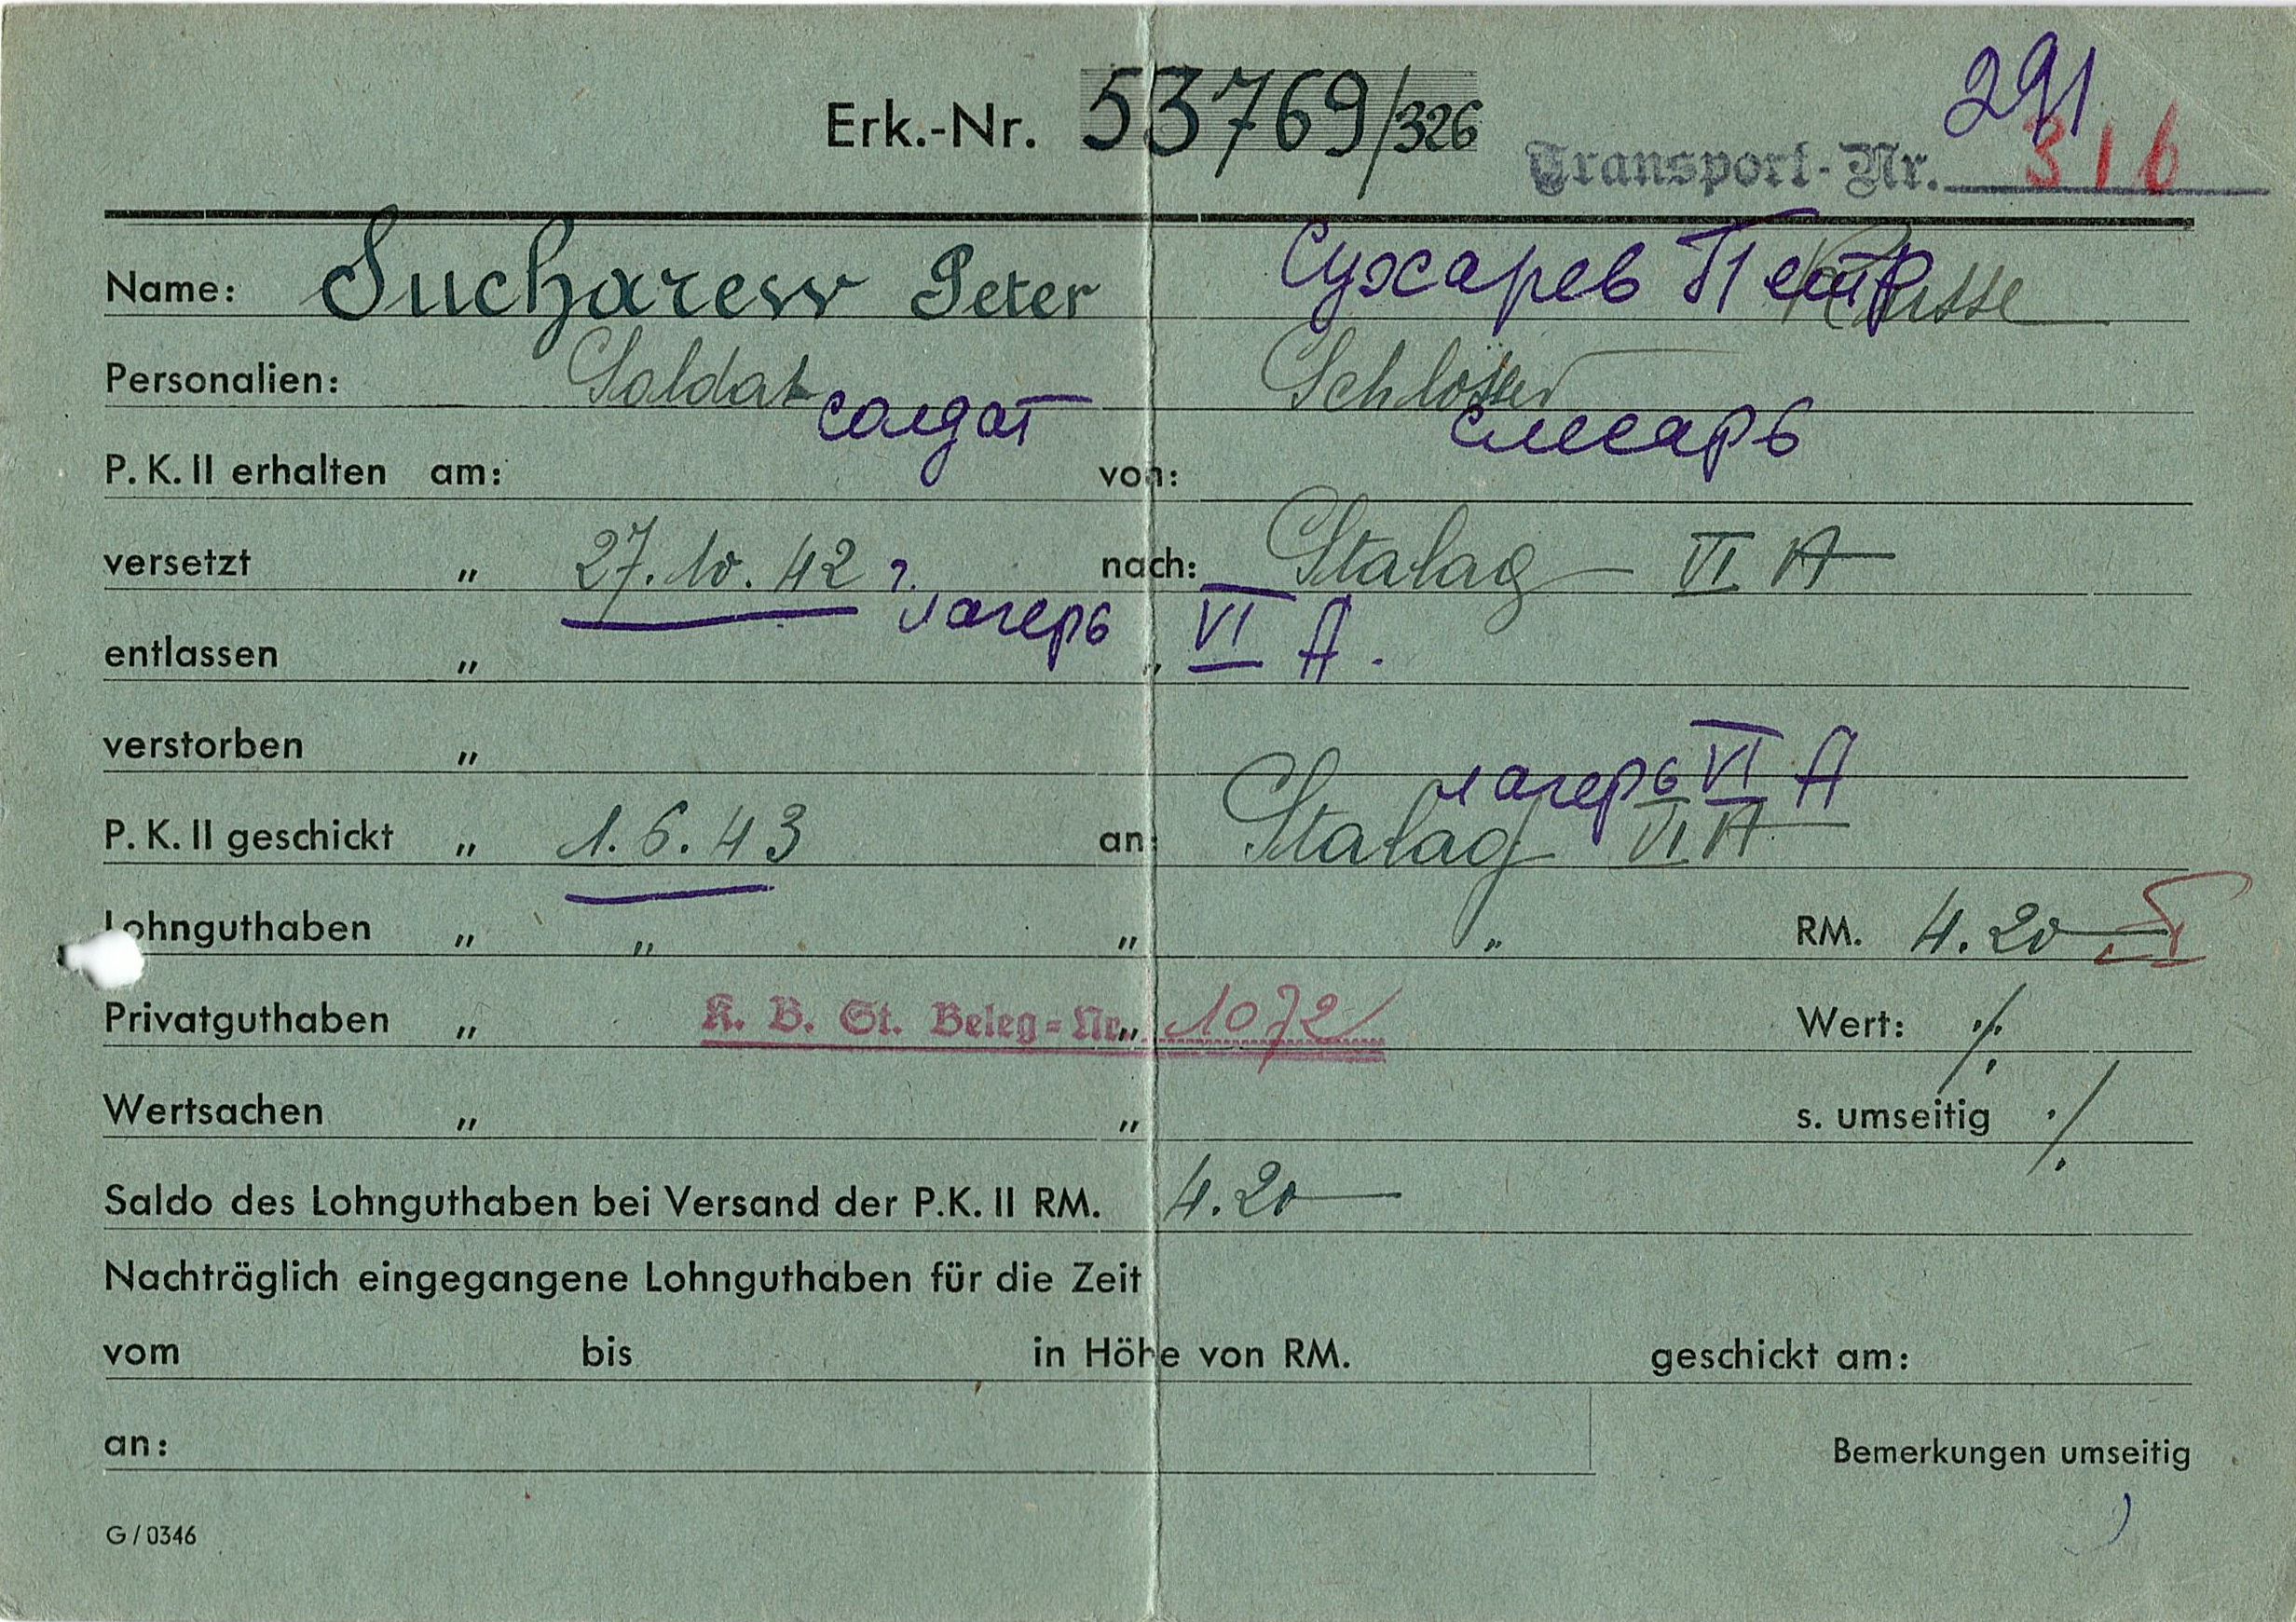 291
Erk.-Nr. 53769/326
Transport-Nr. 316
Name: Sucharew Peter Сухарев Петр Russe
Personalien: Soldat Schlosser
солдат слесарь
P. K. II erhalten am: von:
versetzt „ 27.10.42 г. nach: Stalag VI A
лагерь VI A.
entlassen „ „
verstorben „
лагерь VI A
P. K. II geschickt „ 1.6.43 an: Stalag VI A
Lohnguthaben „ „ „ „ RM. 4.20
Privatguthaben „ K. B. St. Beleg=Nr. „ 1072 Wert: ·/.
Wertsachen „ „ s. umseitig ·/.
Saldo des Lohnguthaben bei Versand der P.K. II RM. 4.20
Nachträglich eingegangene Lohnguthaben für die Zeit
vom bis in Höhe von RM. geschickt am:
an:
Bemerkungen umseitig
G/0346